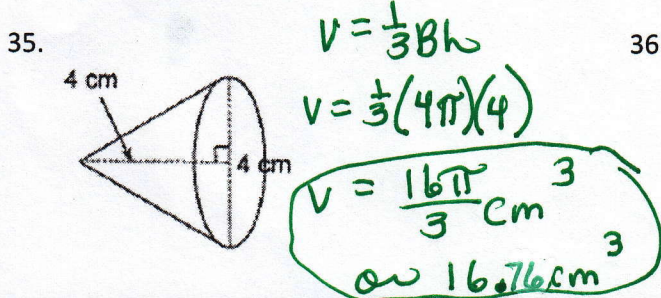 35.
36
4 cm
4 cm
V = 1/3 Bh
V = 1/3 (4π)(4)
V = 16π/3 cm³
or 16.76 cm³